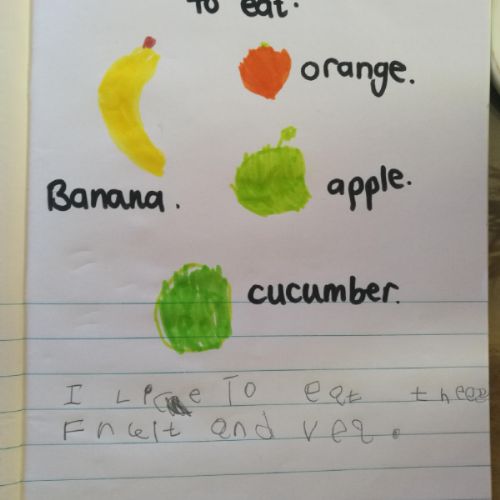 to eat.
orange.
Banana.
apple.
cucumber.
I to eat thees
Frueit and veg.